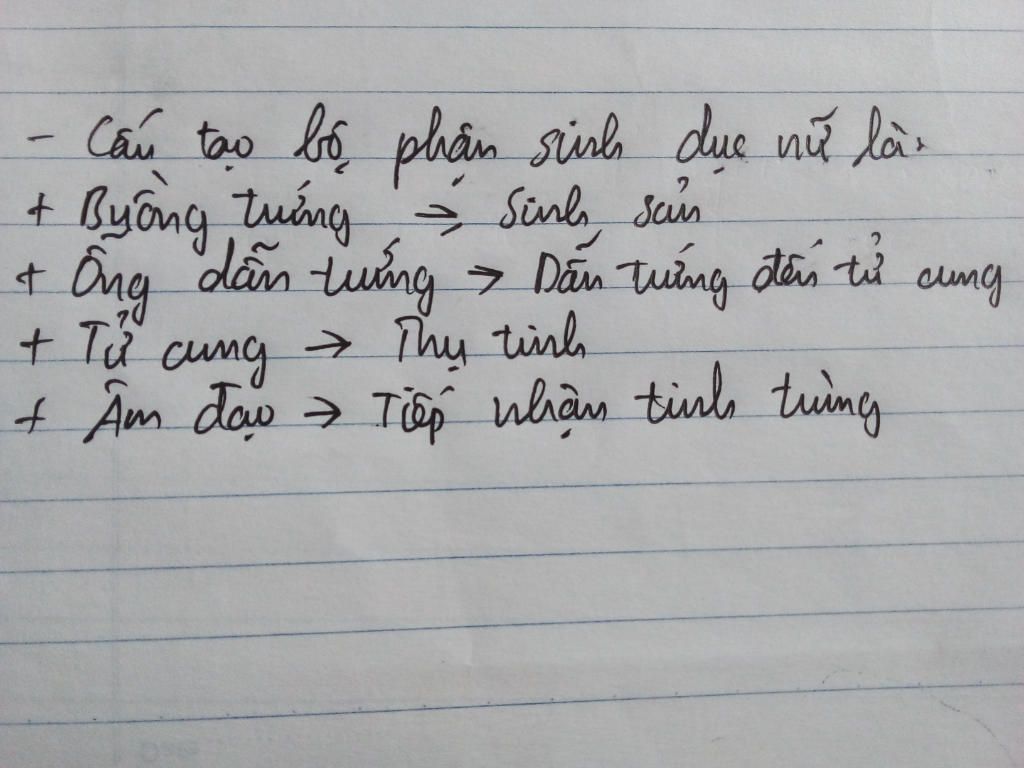 - Cấu tạo bộ phận sinh dục nữ là:
+ Buồng trứng → Sinh sản
+ Ống dẫn trứng → Dẫn trứng đến tử cung
+ Tử cung → Thụ tinh
+ Âm đạo → Tiếp nhận tinh trùng